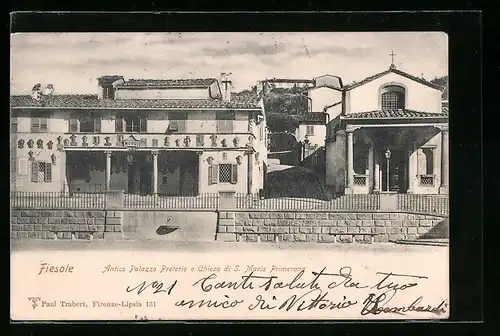 Fiesole Antico Palazzo Pretorio e Chiesa di S. Maria Primerana
Paul Trabert, Firenze-Lipsia 131
No 21 Tanti saluti da tuo
amico di Vittorio Lombardi